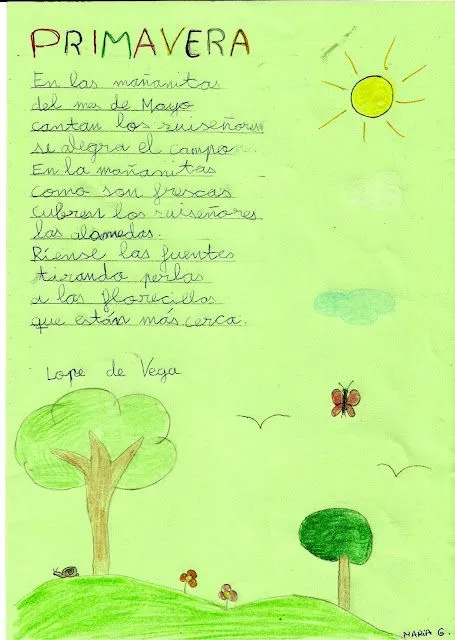 PRIMAVERA
En las mañanitas
del mes de Mayo
cantan los ruiseñores
se alegra el campo.
En la mañanitas
como son frescas
cubren los ruiseñores
las alamedas.
Ríense las fuentes
tirando perlas
a las florecillas
que están más cerca.
Lope de Vega
MARIA G.